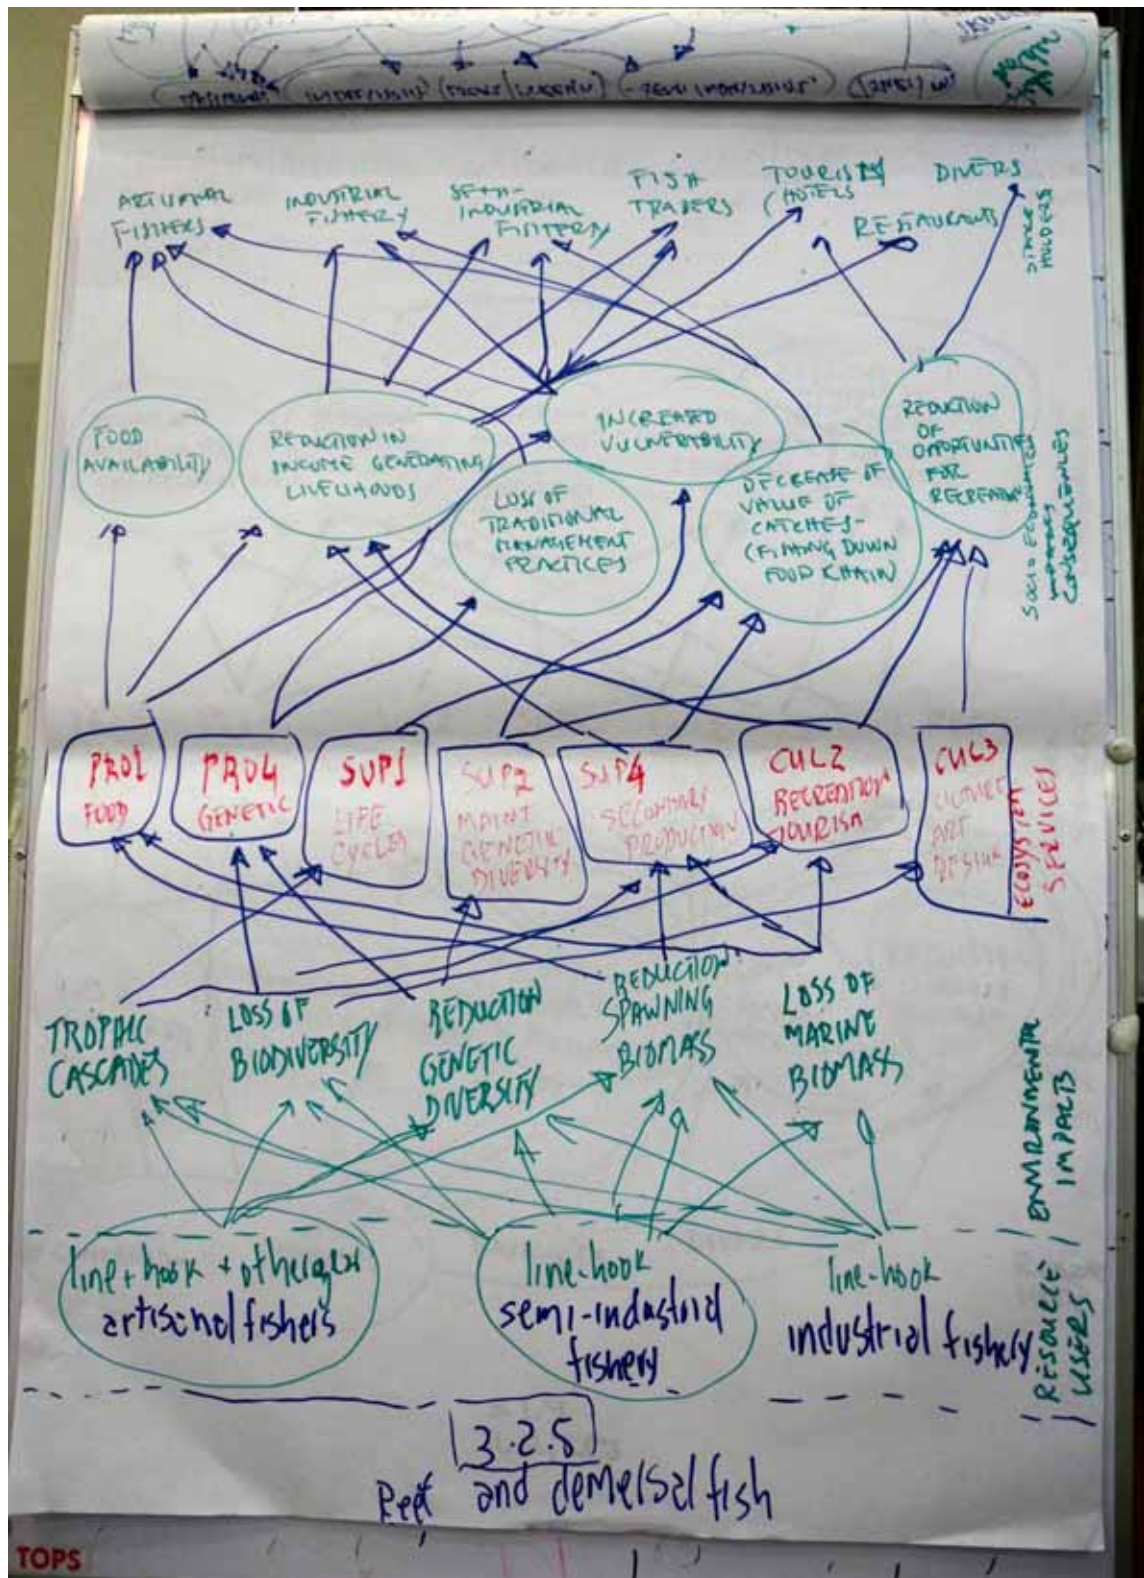 ARTISANAL
FISHERS
INDUSTRIAL
FISHERY
SEMI-
INDUSTRIAL
FISHERY
FISH
TRADERS
TOURISM
(HOTELS
DIVERS
RESTAURANTS
STAKE
HOLDERS
FOOD
AVAILABILITY
REDUCTION IN
INCOME GENERATING
LIVELIHOODS
LOSS OF
TRADITIONAL
MANAGEMENT
PRACTICES
INCREASED
VULNERABILITY
DECREASE OF
VALUE OF
CATCHES-
(FISHING DOWN
FOOD CHAIN)
REDUCTION
OF
OPORTUNITIES
FOR
RECREATION
SOCIO ECONOMIC
CONSEQUENCES
PRO1
FOOD
PRO4
GENETIC
SUP1
LIFE
CYCLES
SUP2
MAINT
GENETIC
DIVERSITY
SUP4
SECONDARY
PRODUCTION
CUL2
RECREATION
TOURISM
CUL3
CULTURE
ART
DESIGN
ECOSYSTEM
SERVICES
TROPHIC
CASCADES
LOSS OF
BIODIVERSITY
REDUCTION
GENETIC
DIVERSITY
REDUCTION
SPAWNING
BIOMASS
LOSS OF
MARINE
BIOMASS
ENVIRONMENTAL
IMPACTS
line + hook + other gear
artisanal fishers
line-hook
semi-industrial
fishery
line-hook
industrial fishery
RESOURCE
USERS
3.2.5
Reef and demersal fish
TOPS